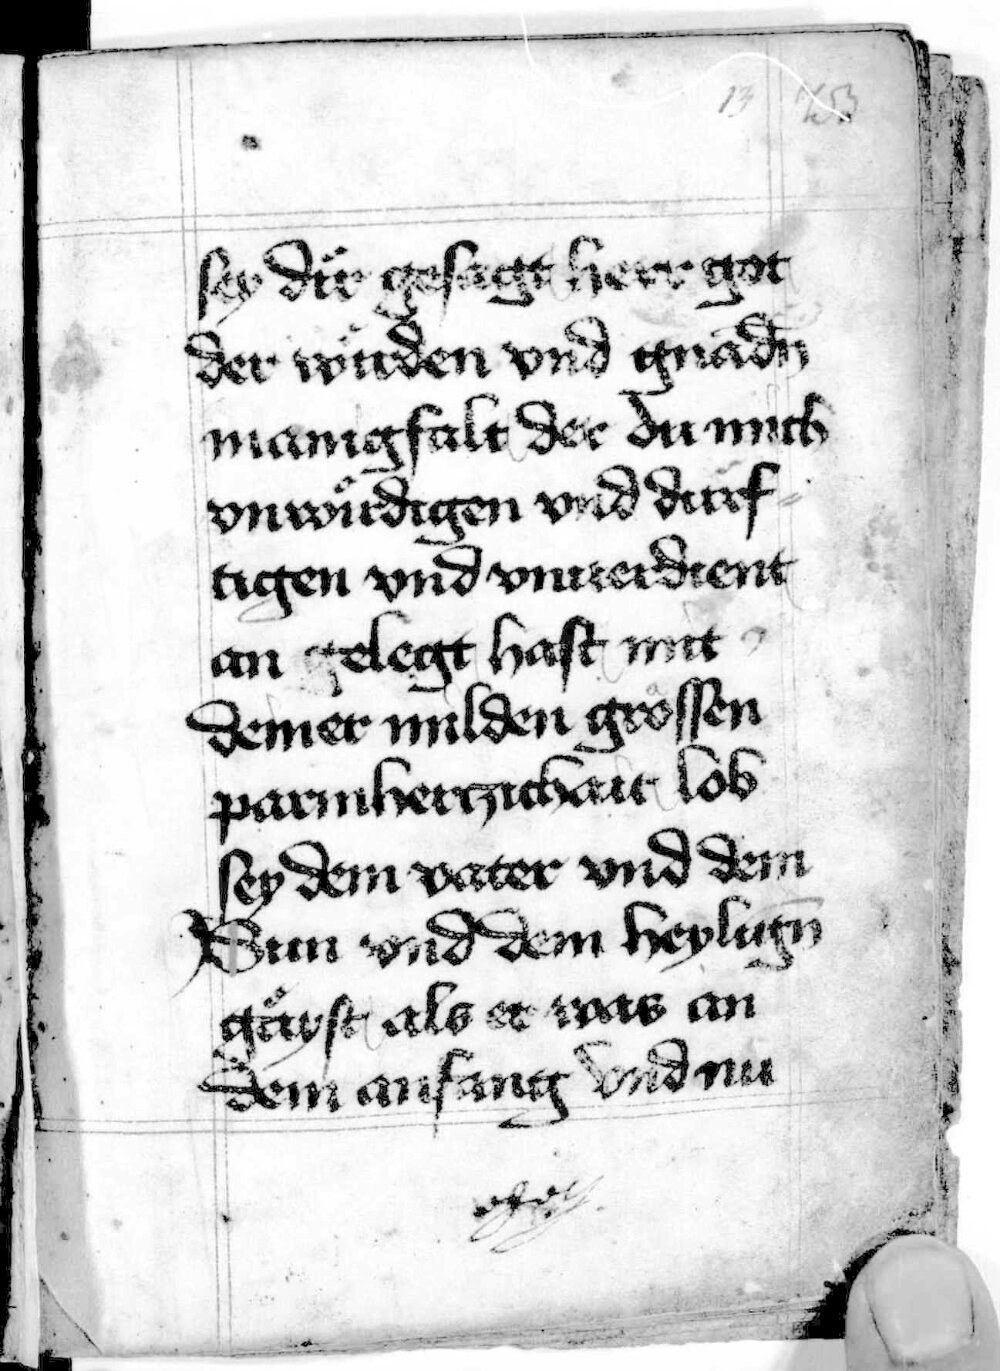 13
sey dir gesagt herr got
der wu̇rden vnd gnadn̄
manigfalt der du mich
vnwu̇rdigen vnd durf-
tigen vnd vnuerdient
an gelegt hast mit
deiner milden grossen
parmhertzichait lob
sey dem vater vnd dem
Sun vnd dem heylign̄
gäyst als er was an
dem anfang vnd nu